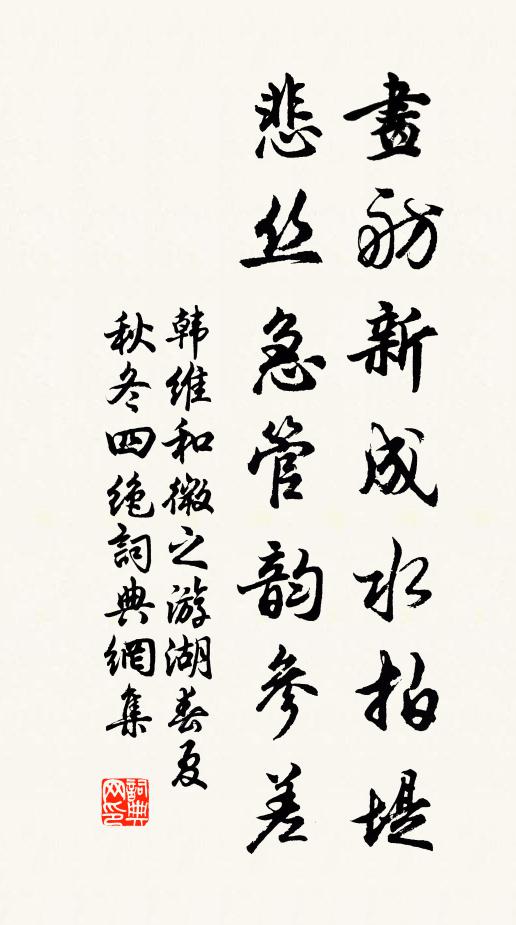 畫舫新成水拍堤
悲丝急管韵參差
韩维和微之游湖春夏
秋冬四绝詞典網集
詞典网印